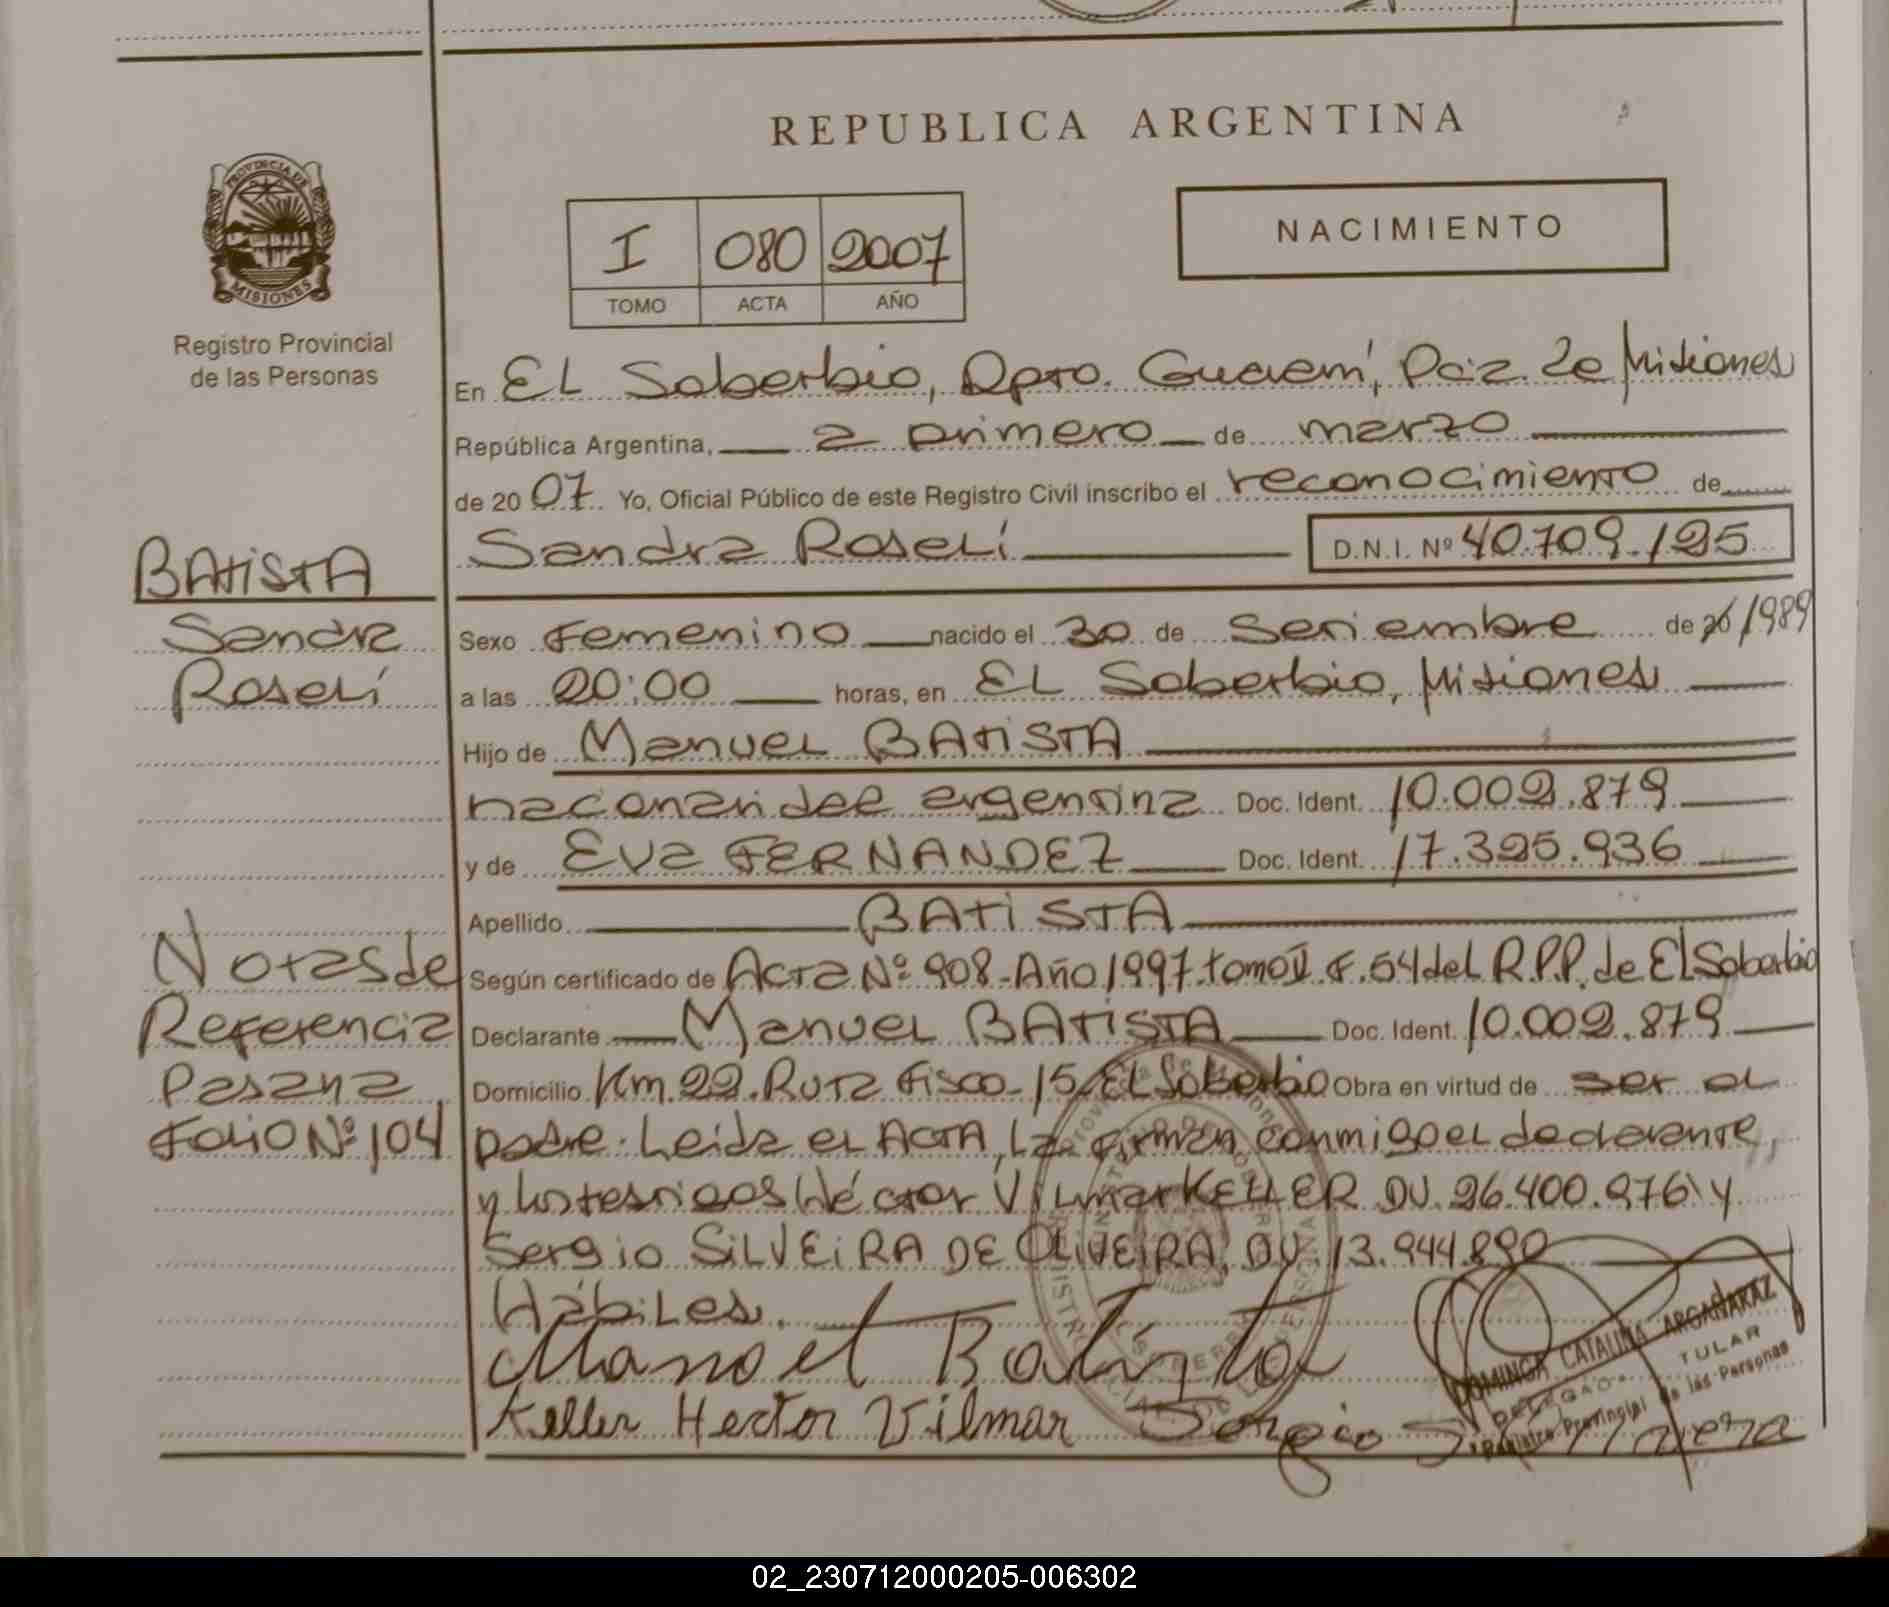 REPUBLICA ARGENTINA
PROVINCIA DE
MISIONES
Registro Provincial
de las Personas
NACIMIENTO
I 080 2007
TOMO ACTA AÑO
En EL Soberbio, Dpto. Guaraní, Pcia. de Misiones
República Argentina, a primero de marzo
de 2007. Yo, Oficial Público de este Registro Civil inscribo el reconocimiento de
Sandra Roselí D.N.I. Nº 40.709.125
BATISTA
Sandra
Roselí
Sexo Femenino nacido el 30 de Setiembre de 1989
a las 20:00 horas, en EL Soberbio, Misiones
Hijo de Manuel BATISTA
nacionalidad argentina Doc. Ident. 10.002.879
y de Eva FERNANDEZ Doc. Ident. 17.325.936
Apellido BATISTA
Según certificado de Acta Nº 908-Año 1997. tomo II. F. 54 del R.P.P. de El Soberbio
Declarante Manuel BATISTA Doc. Ident. 10.002.879
Domicilio Km. 22. Ruta Fisco-15. El Soberbio Obra en virtud de ser el
padre. Leida el ACTA, La firman conmigo el declarante,
y los testigos Héctor Vilmar KELLER DU. 26.400.976 y
Sergio SILVEIRA DE OLIVEIRA, DU. 13.944.890
Hábiles.
Notas de
Referencia
Pasan a
Folio Nº 104
Manoel Batista
Keller Hector Vilmar Sergio
DOMINGA CATALINA ARGAÑARAZ
TULAR
Registro Provincial de las Personas
02_230712000205-006302